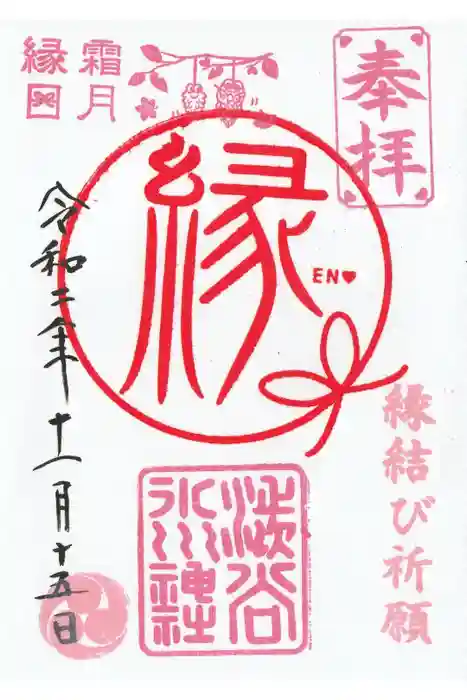 奉拝
霜月
縁日
縁
EN♥
縁結び祈願
澁谷
氷川
神社
令和二年十一月十五日